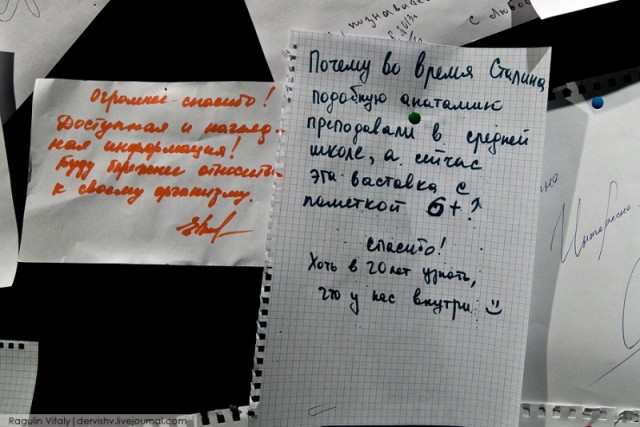 познавате
2013г
с любо
Огромное спасибо!
Доступная и нагляд-
ная информация!
Буду бережнее относить-
к своему организму.
Почему во время Сталина
подобную анатамию
преподавали в средней
школе, а сейчас
эта васта́вка с
пометкой 6+?
спасибо!
Хоть в 20 лет узнать,
что у нас внутри :)
Интересно
Ragulin Vitaly | dervishv.livejournal.com